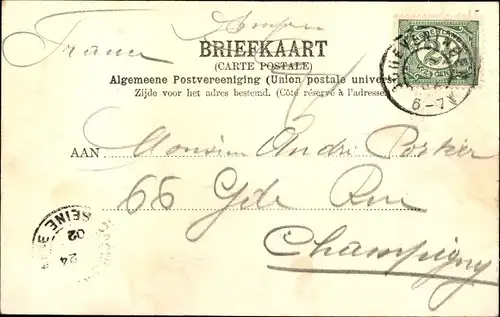 France
BRIEFKAART
(CARTE POSTALE)
Algemeene Postvereeniging (Union postale univers
Zijde voor het adres bestemd. (Côté réservé à l'adresse
6-7
AAN Monsieur André Portier
66 Gde Rue
Champigny
SEINE
02
24